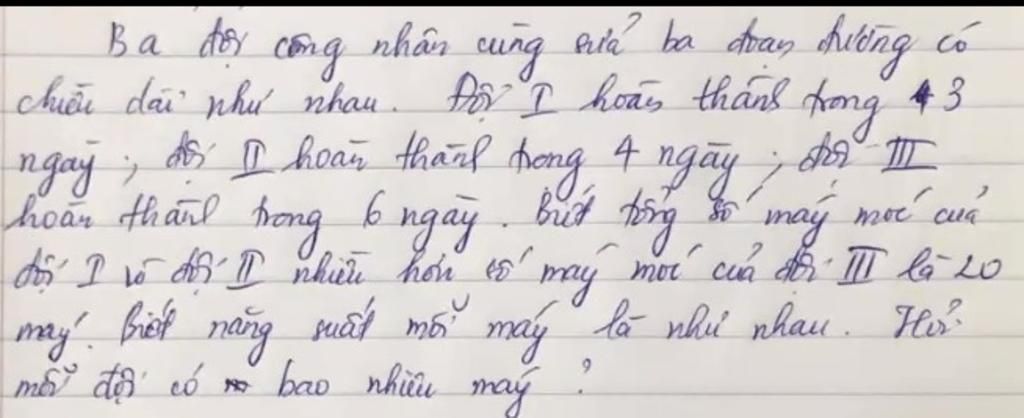 Ba đội công nhân cùng sửa ba đoạn đường có
chiều dài như nhau. Đội I hoàn thành trong 3
ngày; đội II hoàn thành trong 4 ngày; đội III
hoàn thành trong 6 ngày. Biết tổng số máy móc của
đội I và đội II nhiều hơn số máy móc của đội III là 20
máy. Biết năng suất mỗi máy là như nhau. Hỏi
mỗi đội có bao nhiêu máy?